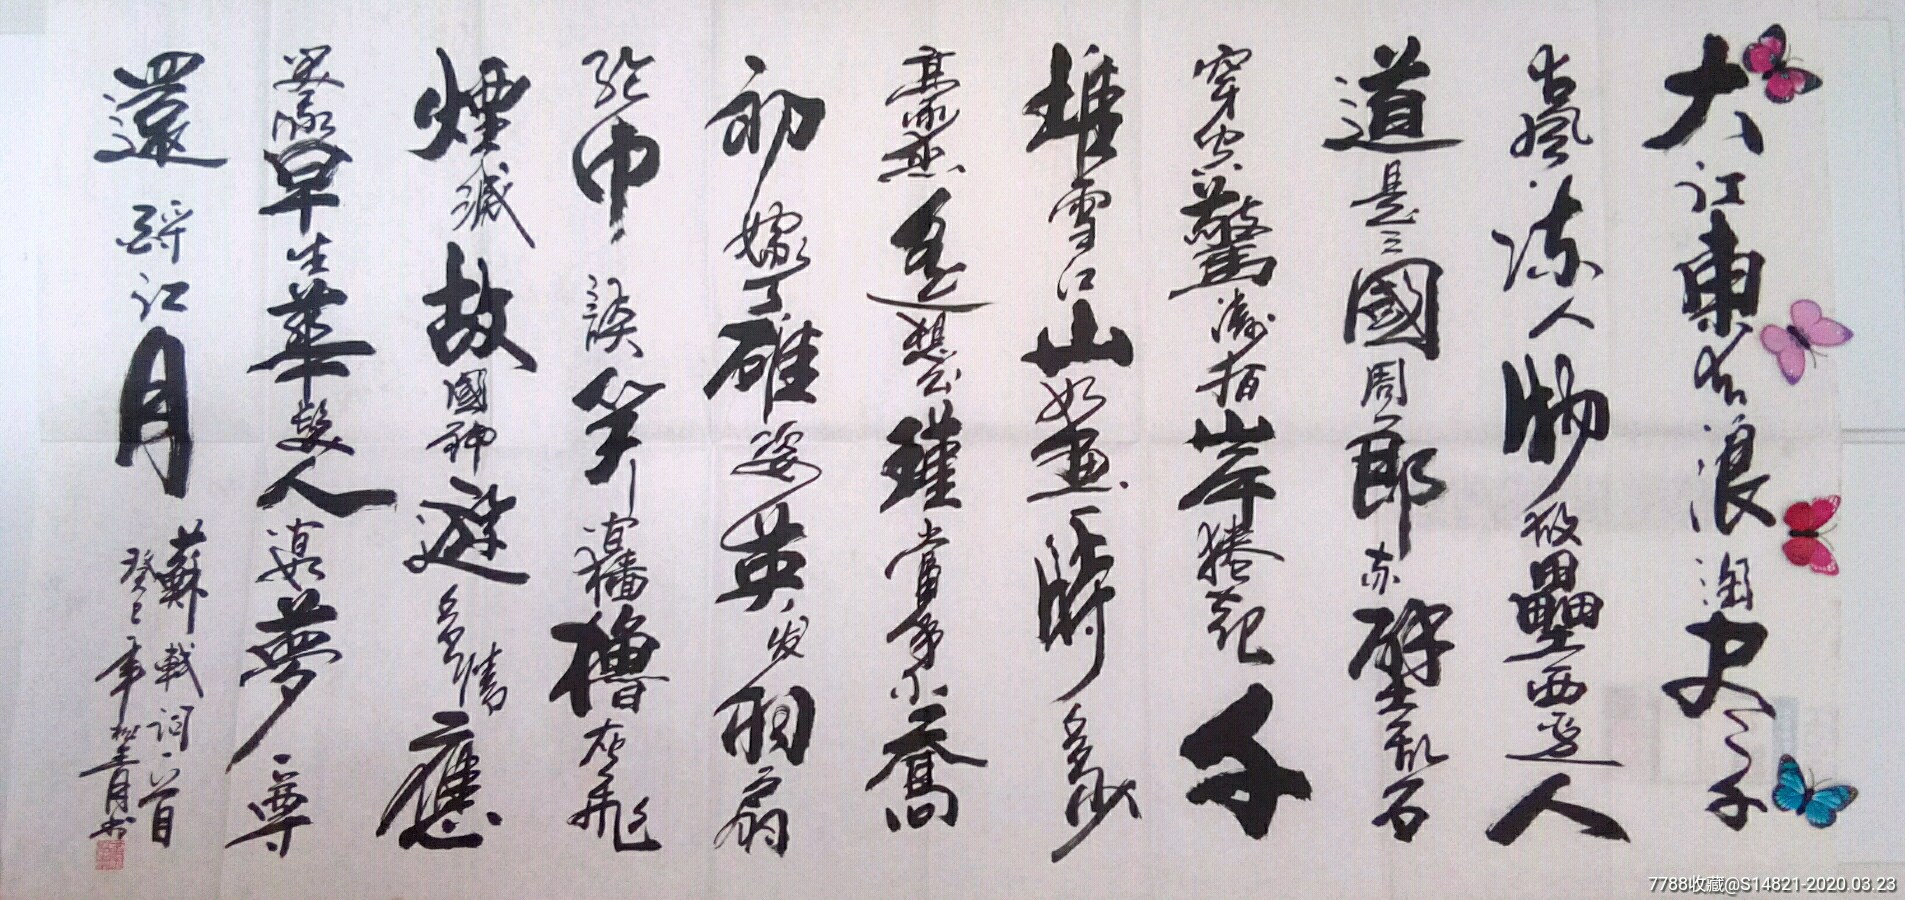 大江東去浪淘尽千
古風流人物故壘西邊人
道是三國周郎赤壁乱石
穿空驚濤拍岸捲起千
堆雪江山如畫一時多少
豪杰遙想公瑾當年小喬
初嫁了雄姿英发羽扇
綸巾談笑間檣櫓灰飛
煙滅故國神遊多情應
笑我早生華髮人間如夢一尊
還酹江月
蘇軾词一首
癸巳年
7788收藏@S14821-2020.03.23